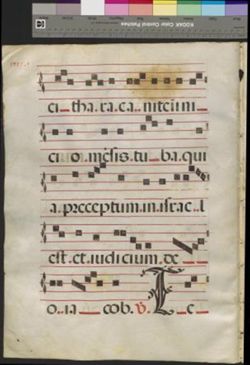 KODAK Color Control Patches
ci_tha.ra.ca_nite cum_
cum_tu_ba.qui
a.preceptum.in.israe_l
est.et.iudicium.de_
o_ia_cob. V. T_e_